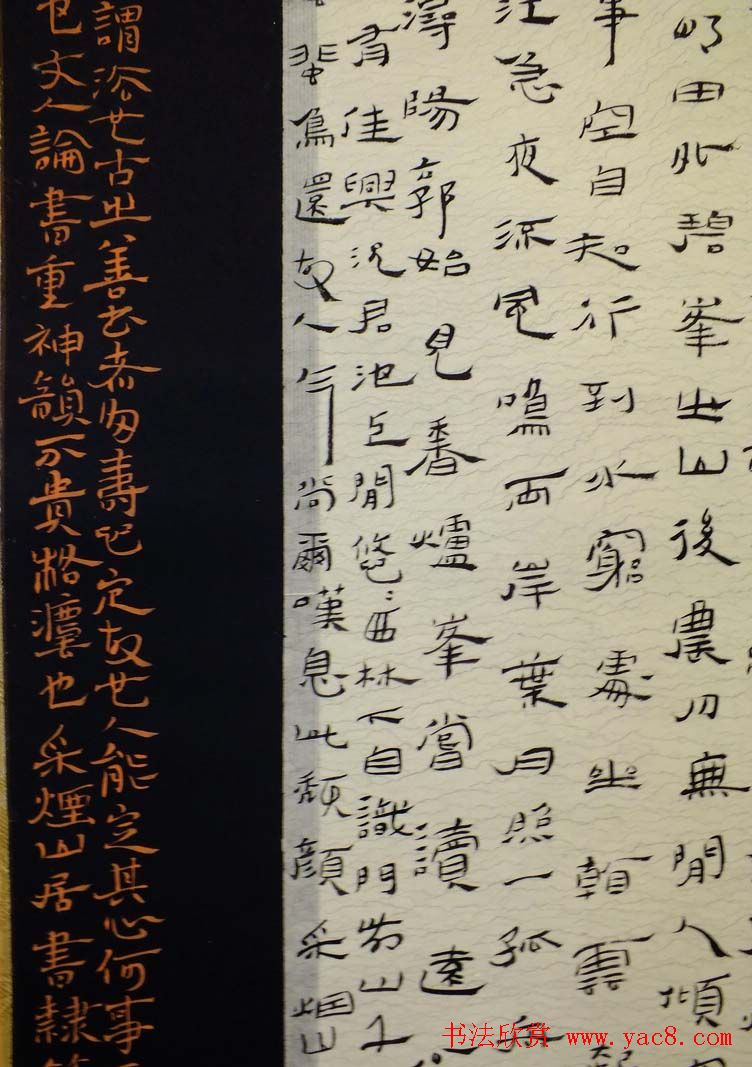 明田外碧峯出山後農月無閒人傾
事空自知行到水窮處坐看雲起
江急夜流風鳴兩岸葉月照一孤舟
潯陽郭始見香爐峯嘗讀遠
有佳興況君池上閒悠〻西林下自識門前山千
飛鳥還故人今尚爾嘆息此頹顏采烟山
謂浴也古之善書者多壽心定故也人能定其心何事
文人論書重神韻不貴格灋也采煙山居書隸
书法欣赏 www.yac8.com